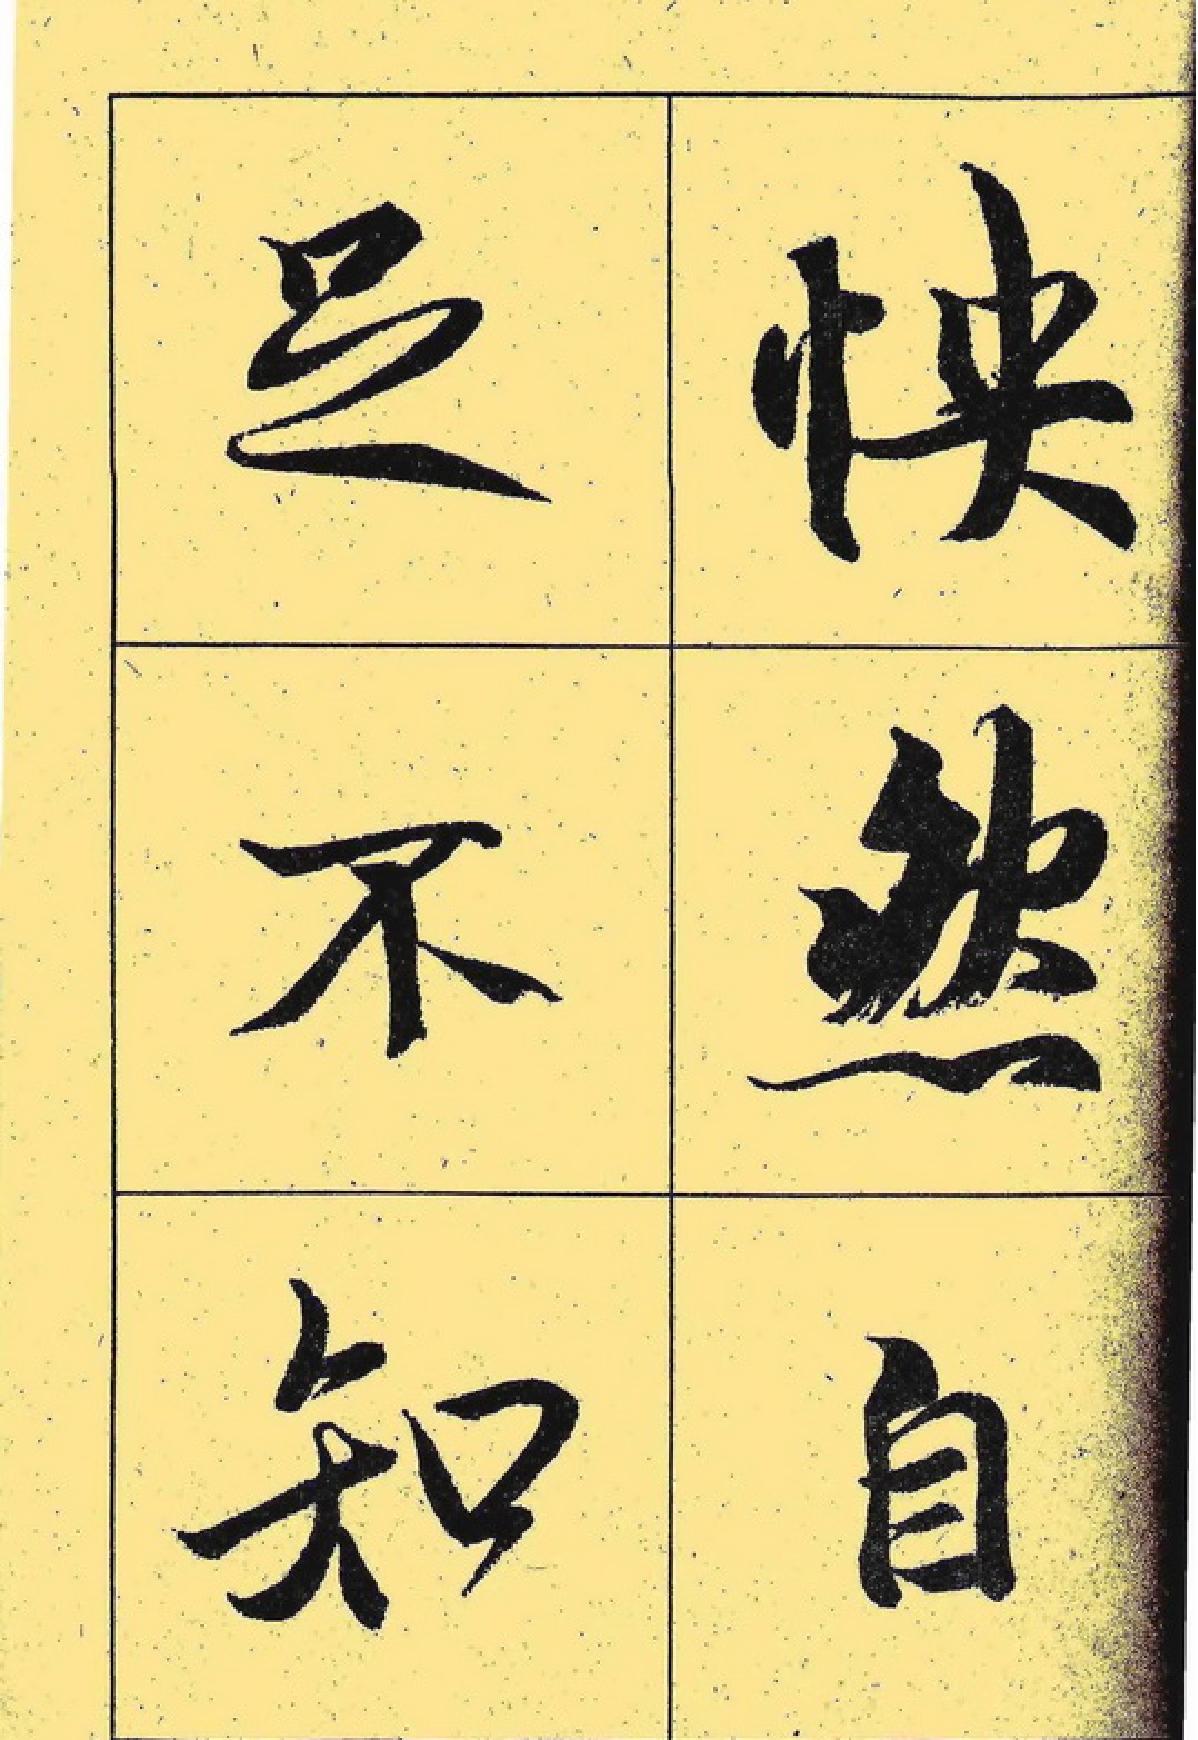 怏然自
足不知